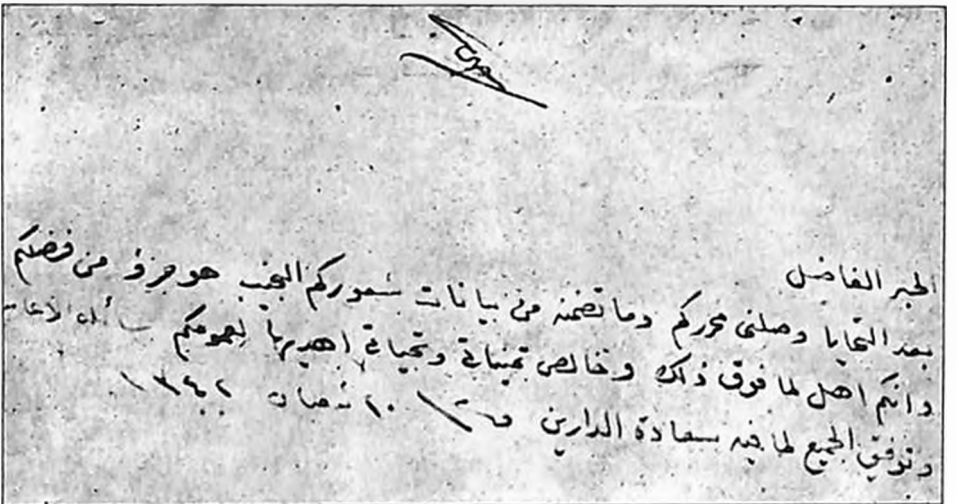 الحبر الفاضل
بعد التحايا وصلنى محرركم وما تضمنه من بيانات شعوركم النجيب هو جزؤ من فضلكم
وانكم اهل لما فوق ذلك وخالص تمنياتي وتحياتي اهديها لعمومكم سائل الاعانه
وتوفيق الجميع لما فيه سعادة الدارين ٢٠ شعبان ١٣٤٢